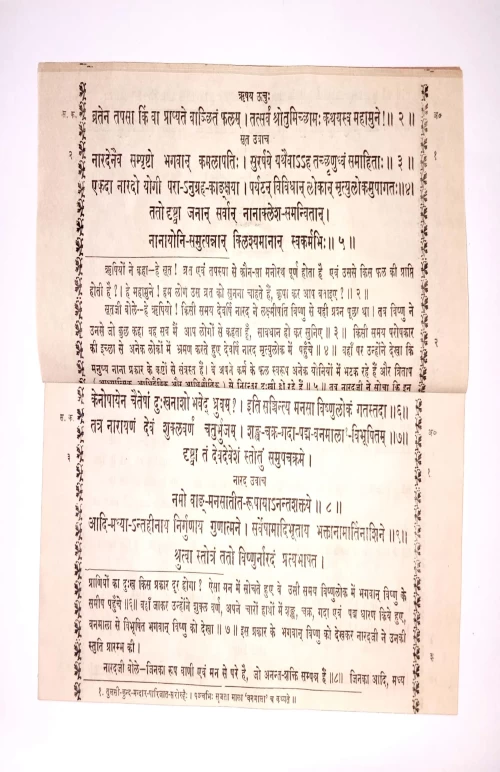 ऋषय ऊचुः
स. क. व्रतेन तपसा किं वा प्राप्यते वाञ्छितं फलम् । तत्सर्वं श्रोतुमिच्छामः कथयस्व महामुने! ॥ २ ॥ अ०
सूत उवाच
२ नारदेनैव सम्पृष्टो भगवान् कमलापतिः । सुरर्षये यथैवाऽऽह तच्छृणुध्वं समाहिताः ॥ ३ ॥ १
एकदा नारदो योगी परा-ऽनुग्रह-काङ्क्षया । पर्यटन् विविधान् लोकान् मृत्युलोकमुपागतः॥४।
ततो दृष्ट्वा जनान् सर्वान् नानाक्लेश-समन्वितान् ।
नानायोनि-समुत्पन्नान् क्लिश्यमानान् स्वकर्मभिः॥ ५ ॥
ऋषियों ने कहा–हे सूत! व्रत एवं तपस्या से कौन-सा मनोरथ पूर्ण होता है एवं उससे किस फल की प्राप्ति
होती है?। हे महामुने! हम लोग उस व्रत को सुनना चाहते हैं, कृपा कर आप बताइए? ॥ २ ॥
सूतजी बोले–हे ऋषियो! किसी समय देवर्षि नारद ने लक्ष्मीपति विष्णु से यही प्रश्न पूछा था। तब विष्णु ने
उनसे जो कुछ कहा वह सब मैं आप लोगों से कहता हूँ, सावधान हो कर सुनिए ॥ ३ ॥ किसी समय परोपकार
की इच्छा से अनेक लोकों में भ्रमण करते हुए देवर्षि नारद मृत्युलोक में पहुँचे ॥ ४ ॥ वहाँ पर उन्होंने देखा कि २
मनुष्य नाना प्रकार के कष्टों से संत्रस्त हैं। वे अपने कर्म के फल स्वरूप अनेक योनियों में भटक रहे हैं और त्रिताप
स. क. केनोपायेन चैतेषां दुःखनाशो भवेद् ध्रुवम्?। इति सञ्चिन्त्य मनसा विष्णुलोकं गतस्तदा॥६॥
तत्र नारायणं देवं शुक्लवर्णं चतुर्भुजम् । शङ्ख-चक्र-गदा-पद्म-वनमाला'-विभूषितम् ॥७॥ अ०
३ दृष्ट्वा तं देवदेवेशं स्तोतुं समुपचक्रमे । १
नारद उवाच
नमो वाङ्-मनसातीत-रूपायाऽनन्तशक्तये ॥ ८ ॥
आदि-मध्या-ऽन्तहीनाय निर्गुणाय गुणात्मने । सर्वेषामादिभूताय भक्तानामार्तिनाशिने ॥९॥
श्रुत्वा स्तोत्रं ततो विष्णुर्नारदं प्रत्यभाषत ।
प्राणियों का दुःख किस प्रकार दूर होगा? ऐसा मन में सोचते हुए वे उसी समय विष्णुलोक में भगवान् विष्णु के
समीप पहुँचे ॥६॥ वहाँ जाकर उन्होंने शुक्ल वर्ण, अपने चारों हाथों में शङ्ख, चक्र, गदा एवं पद्म धारण किये हुए,
वनमाला से विभूषित भगवान् विष्णु को देखा ॥ ७ ॥ इस प्रकार के भगवान् विष्णु को देखकर नारदजी ने उनकी
स्तुति प्रारम्भ की। ३
नारदजी बोले–जिनका रूप वाणी एवं मन से परे है, जो अनन्त-शक्ति सम्पन्न हैं ॥८॥ जिनका आदि, मध्य
१. तुलसी-कुन्द-मन्दार-पारिजात-सरोरुहैः। पञ्चभिः सुजता माला 'वनमाला' च कथ्यते॥